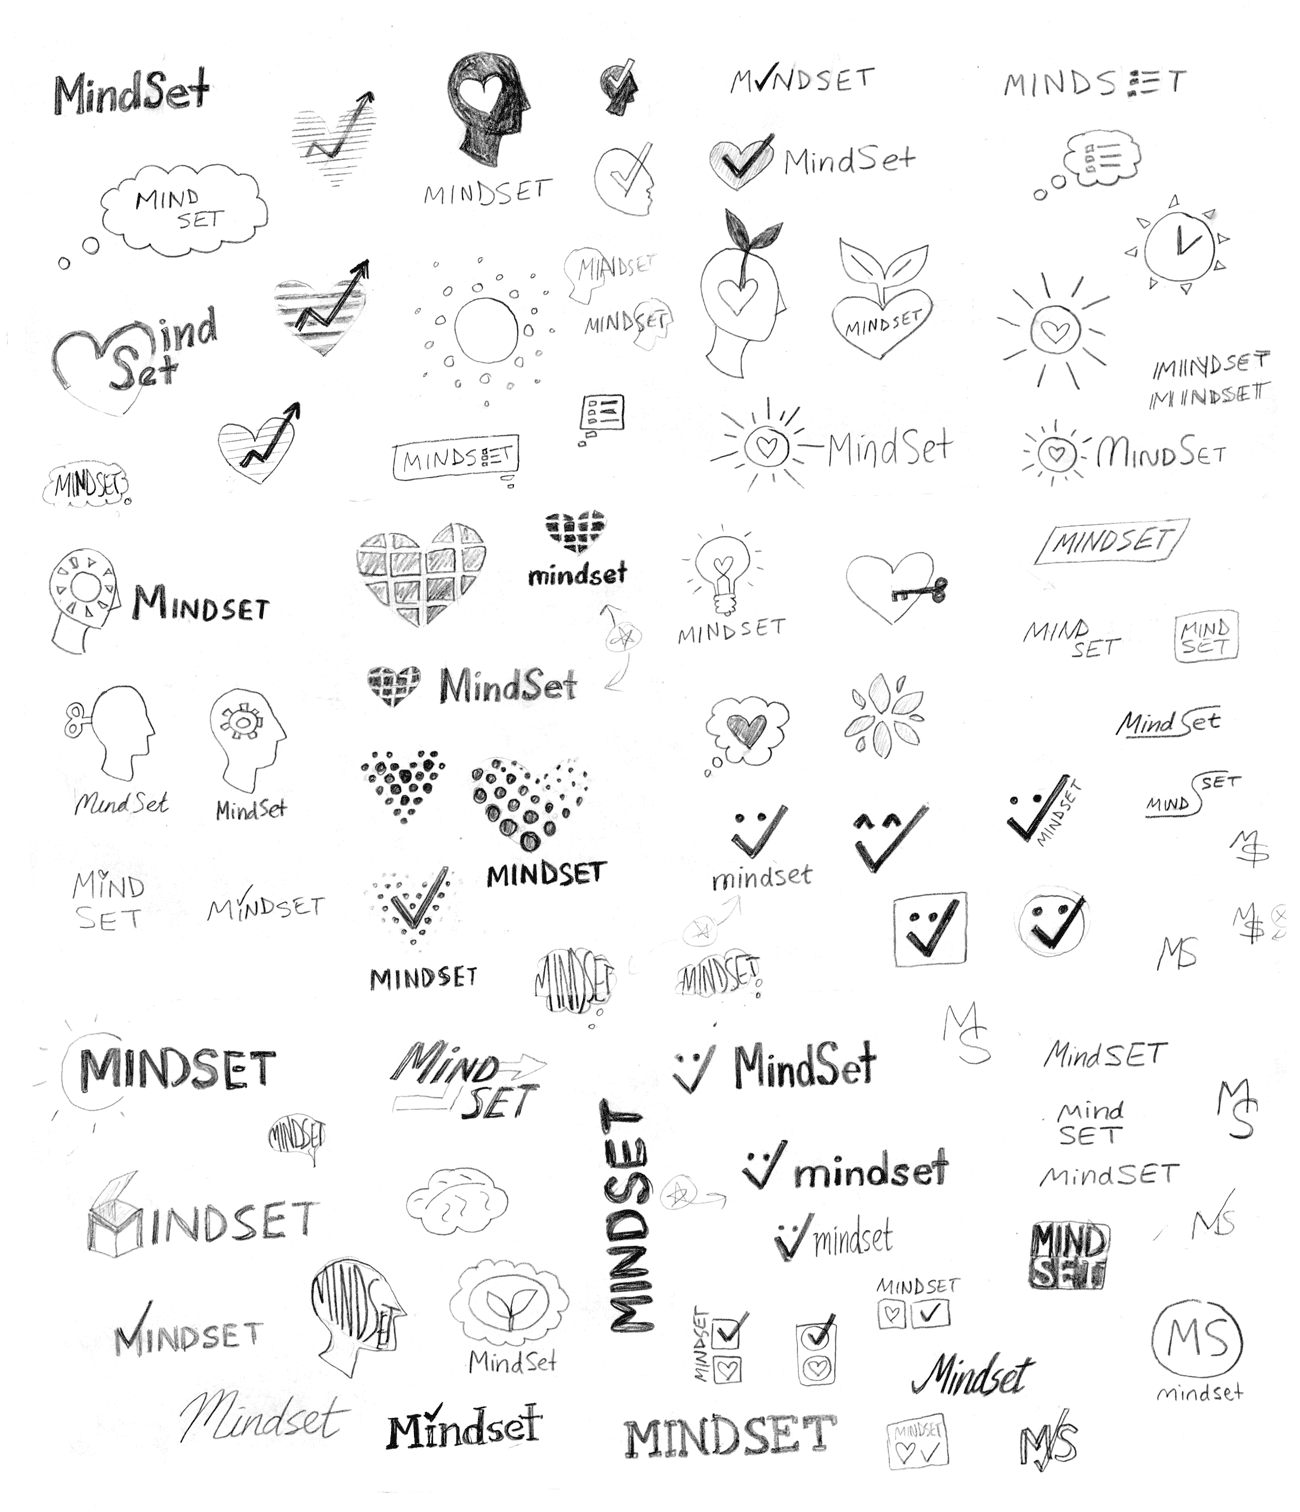 MindSet
MINDSET
MNDSET
MINDSET
MIND
SET
MindSet
MINDSET
MINDSET
MINDSET
Mind
Set
MINDSET
MINDSET
MINDSET
MindSet
MINDSET
MINDSET
MINDSET
mindset
MINDSET
MINDSET
MINDSET
MIND
SET
MIND
SET
MindSet
MindSet
MIND SET
MindSet
MindSet
MINDSET
mindset
MINDSET
MS
MIND
SET
MINDSET
MS
MS
MINDSET
MINDSET
MINDSET
MS
MINDSET
MIND
SET
MindSet
MindSET
MINDSET
MINDSET
mindset
Mind
SET
MS
MindSET
MINDSET
mindset
MS
MIND
SET
MINDSET
MINDSET
MindSet
MINDSET
MINDSET
MS
mindset
Mindset
Mindset
Mindset
MINDSET
MINDSET
MS